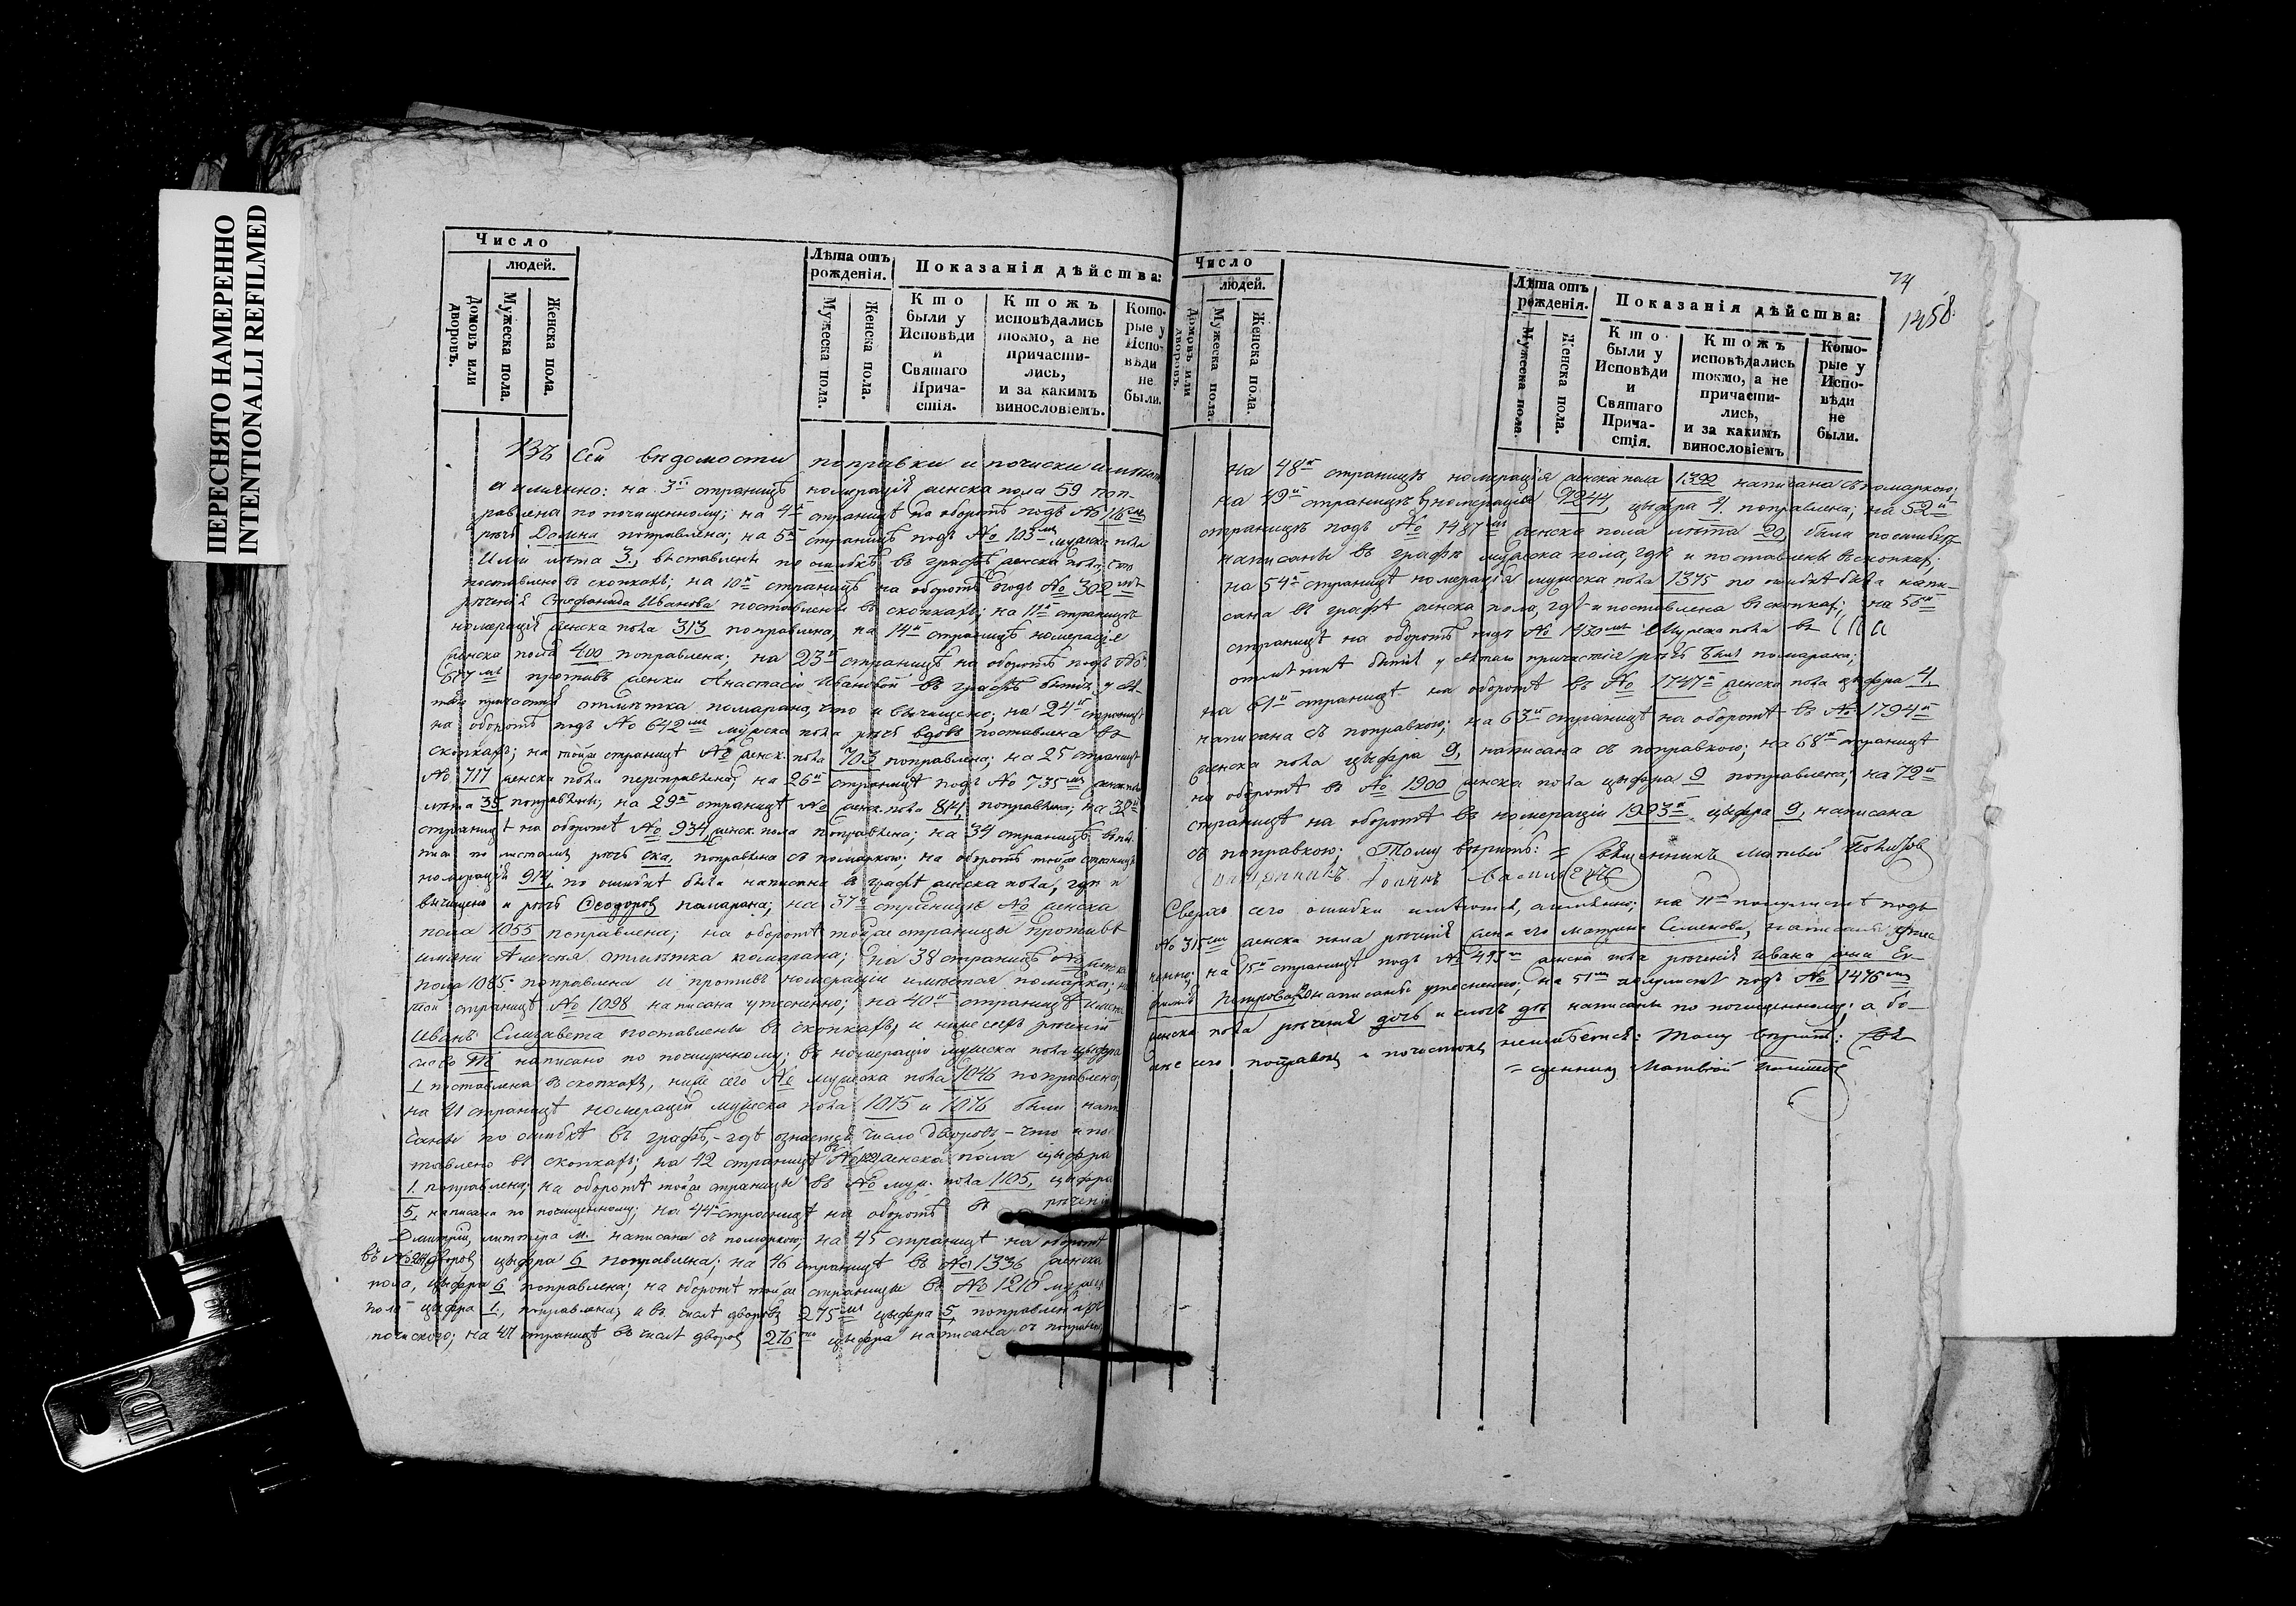 ПЕРЕСНЯТО НАМЕРЕННО
INTENTIONALLI REFILMED
Число
людей.
Домовъ или дворовъ.
Мужеска пола.
Женска пола.
Лѣта отъ рожденія.
Мужеска пола.
Женска пола.
Показанія дѣйства:
Кто были у Исповѣди и Святаго Причастія.
Ктожъ исповѣдались токмо, а не причастились, и за какимъ винословіемъ.
Которые у Исповѣди не были.
Въ сей вѣдомости поправки и почиски имѣют
а имянно: на 3й страницѣ номерація женска пола 59 поп-
равлена по почищенному; на 4й страницѣ на оборотѣ подъ № 116м
рѣчь Домна поправлена; на 5й страницѣ подъ № 103м мужска пола
лѣта 3, вставлены по ошибкѣ въ графѣ женска пола, что
поставлено въ скопкахъ; на 10й страницѣ на оборотѣ подъ № 302мъ
рѣченія Стефанида Иванова поставлены въ скопкахъ; на 11й страницѣ
номерація женска пола 313 поправлена, на 14й страницѣ номерація
женска пола 400 поправлена; на 23й страницѣ на оборотѣ подъ
противъ женки Анастасіи Ивановой въ графѣ бытія у свя-
таго причастія отмѣтка помарана, что и вычищено; на 24й страницѣ
на оборотѣ подъ № 642мъ мужска пола рѣчь вдовъ поставлена въ
скопкахъ; на тойже страницѣ № женск. пола 703 поправлена; на 25 страницѣ
№ 717 женска пола переправлена; на 26й страницѣ подъ № 735мъ
лѣта 35 поправлены; на 29й страницѣ № женск. пола 814, поправлена; на
страницѣ на оборотѣ № 934, женск. пола поправлена; на 34 страницѣ
по листамъ рѣчь ска, поправлена съ помаркою; на оборотѣ тойже страницы
номерація 914, по ошибкѣ была написана въ графѣ женска пола, гдѣ и
вычищено и рѣчь Ѳеодоровъ помарана; на 37й страницѣ № женска
пола 1055 поправлена; на оборотѣ тойже страницы противъ
имени Алексѣя отмѣтка помарана; на 38 страницѣ № женска
пола 1085 поправлена и противъ номераціи имѣется помарка; на
той страницѣ № 1098 написана утѣсненно; на 40й страницѣ имена
Иванъ Елизавета поставлены въ скопкахъ, и ниже сихъ рѣченій
слово написано по почищенному; въ номераціи мужеска пола цыфра
1 поставлена въ скопкахъ, ниже сего № мужеска пола 1046 поправлена,
на 41 страницѣ номерація мужеска пола 1075 и 1076 были напи
саны по ошибкѣ въ графѣ,- гдѣ число дворовъ,- что и по
ставлено въ скопкахъ; на 42 страницѣ въ № женска пола цыфра
1. поправлена; на оборотѣ тойже страницы въ № муж. пола 1105, цыфра
5, написана по почищенному; на 44й страницѣ на оборотѣ въ рѣченіи
Дмитрій, литтера м. написана съ помаркою; на 45 страницѣ на оборотѣ
въ № дворовъ цыфра 6 поправлена; на 46 страницѣ въ № 1336 женска
пола, цыфра 6 поправлена; на оборотѣ тойже страницы въ № 1218 мужеск
пола цыфра 1, поправлена, и въ числѣ дворовъ 275мъ цыфра 5, поправлена
почискою; на 47 страницѣ въ числѣ дворовъ 276 цыфра написана съ поправк
74
1458.
Число
людей.
Домовъ или дворовъ.
Мужеска пола.
Женска пола.
Лѣта отъ рожденія.
Мужеска пола.
Женска пола.
Показанія дѣйства:
Кто были у Исповѣди и Святаго Причастія.
Ктожъ исповѣдались токмо, а не причастились, и за какимъ винословіемъ
Которые у Исповѣди не были.
на 48й страницѣ номерація женска пола 1392 написана съ помаркою;
на 49й страницѣ въ номераціи 1244, цыфра 4. поправлена; на 52й
страницѣ подъ № 1487мъ женска пола лѣта 29, были по ошибкѣ
написаны въ графѣ мужеска пола, гдѣ и поставлены въ скопкахъ;
на 54й страницѣ номерація мужеска пола 1375 по ошибкѣ была напи-
сана въ графѣ женска пола, гдѣ и поставлена въ скопкахъ; на 58й
страницѣ на оборотѣ подъ № 1430мъ мужеска пола въ
отмѣткѣ бытія у святаго причастія рѣчь былъ помарана;
на 61й страницѣ на оборотѣ въ № 1747й женска пола цыфра 4,
написана съ поправкою; на 63й страницѣ на оборотѣ въ № 1794й
женска пола цыфра 9, написана съ поправкою; на 68й страницѣ
на оборотѣ въ № 1900 женска пола цыфра 9 поправлена; на 72й
страницѣ на оборотѣ въ номераціи 1993й цыфра 9, написана
съ поправкою; Тому вѣритъ: = Священникъ Матвѣй
Священникъ Іоаннъ
Сверхъ сего ошибки имѣются, а имянно; на 11м полулистѣ подъ
№ 315мъ женска пола рѣченія жена его Матрена Семенова, написаны утѣс
ненно; на 15й страницѣ подъ № женска пола рѣченія Ивана жена Ев-
Петрова написаны утѣсненно; на 51мъ полулистѣ подъ № 1476мъ
женска пола рѣченія дочь и слогъ написаны по почищенному; а бо-
лѣе сего поправокъ и почистокъ неимѣется: Тому вѣритъ: Свя
= щенникъ Матвѣй